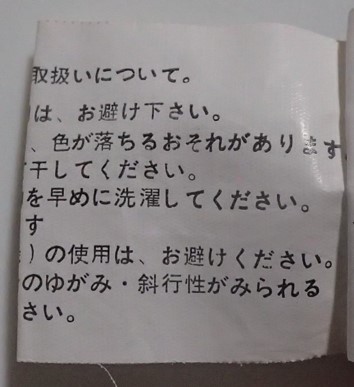 取扱いについて。
は、お避け下さい。
、色が落ちるおそれがあります。
干してください。
を早めに洗濯してください。
す
)の使用は、お避けください。
のゆがみ・斜行性がみられる
さい。